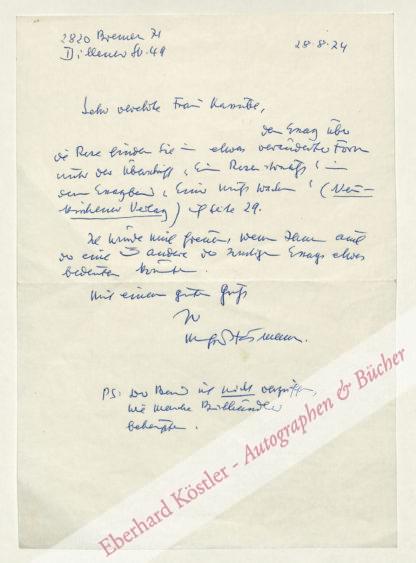 2820 Bremen 71
Dillener Str. 49
28.8.74
Sehr verehrte Frau
den Essay über
die Rose finden Sie in etwas veränderter Form
unter der Überschrift „Ein Rosenstrauß" in
dem Essayband „Einer muß wachen" (Neu-
kirchener Verlag) auf Seite 29.
Ich würde mich freuen, wenn Ihnen auch
der eine oder andere der sonstigen Essays etwas
bedeuten könnte.
Mit einem guten Gruß
Ihr
Manfred Hausmann.
PS: Der Band ist nicht vergriffen,
wie manche Buchhändler
behaupten.
Eberhard Köstler - Autographen & Bücher